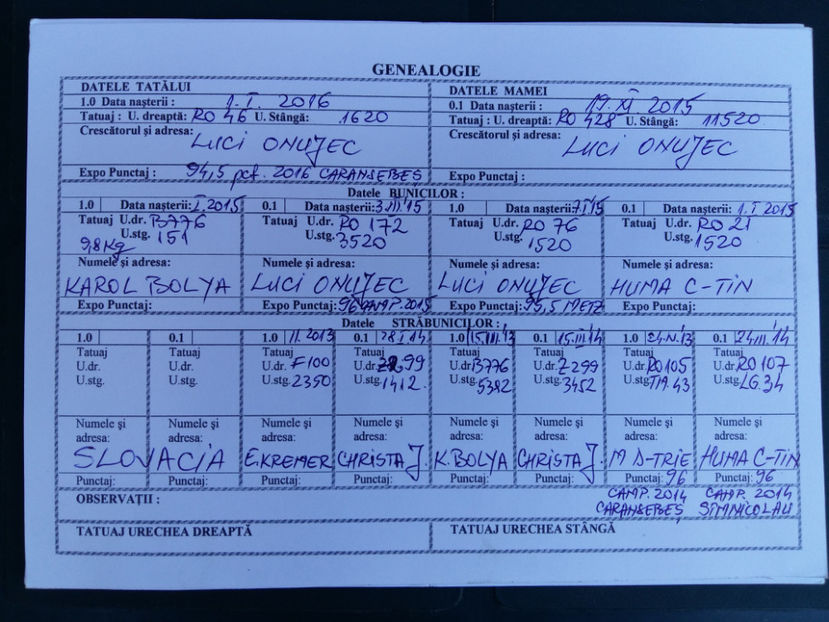 GENEALOGIE
DATELE TATĂLUI
1.0 Data nașterii : 1.I. 2016
Tatuaj : U. dreaptă: RO 46 U. Stângă: 1620
Crescătorul și adresa:
LUCI ONUJEC
Expo Punctaj : 94,5 pct. 2016 CARANSEBEȘ
DATELE MAMEI
0.1 Data nașterii : 19.XI 2015
Tatuaj : U. dreaptă: RO 428 U. Stângă: 11520
Crescătorul și adresa:
LUCI ONUJEC
Expo Punctaj :
Datele BUNICILOR :
1.0 Data nașterii: I.2015
Tatuaj U.dr. B776
U.stg. 151
9,8Kg
Numele și adresa:
KAROL BOLYA
Expo Punctaj:
0.1 Data nașterii: 3.III.'15
Tatuaj U.dr. RO 172
U.stg. 3520
Numele și adresa:
LUCI ONUJEC
Expo Punctaj: 96 CAMP. 2015
1.0 Data nașterii: 7.I.15
Tatuaj U.dr. RO 76
U.stg. 1520
Numele și adresa:
LUCI ONUJEC
Expo Punctaj: 95,5 METZ
0.1 Data nașterii: 1.I 2015
Tatuaj U.dr. RO 21
U.stg. 1520
Numele și adresa:
HUMA C-TIN
Expo Punctaj:
Datele STRĂBUNICILOR :
1.0
Tatuaj
U.dr.
U.stg.
Numele și
adresa:
0.1
Tatuaj
U.dr.
U.stg.
Numele și
adresa:
SLOVACIA
Punctaj:
Punctaj:
1.0 11.2013
Tatuaj
U.dr. F100
U.stg. 2350
Numele și
adresa:
E.KREMER
Punctaj:
0.1 28.I.14
Tatuaj
U.dr. 99
U.stg. 1412.
Numele și
adresa:
CHRISTA J.
Punctaj:
1.0 15.III.'13
Tatuaj
U.dr. B776
U.stg. 5382
Numele și
adresa:
K.BOLYA
Punctaj:
0.1 15.III.'14
Tatuaj
U.dr. Z299
U.stg. 3452
Numele și
adresa:
CHRISTA J.
Punctaj:
1.0 24.IV.'13
Tatuaj
U.dr. RO105
U.stg. TM.43
Numele și
adresa:
M D-TRIE
Punctaj: 96
0.1 24.III.'14
Tatuaj
U.dr. RO 107
U.stg. LG.34
Numele și
adresa:
HUMA C-TIN
Punctaj: 96
OBSERVAȚII :
CAMP. 2014
CARANSEBEȘ
CAMP. 2014
SÎMNICOLAU
TATUAJ URECHEA DREAPTĂ
TATUAJ URECHEA STÂNGĂ